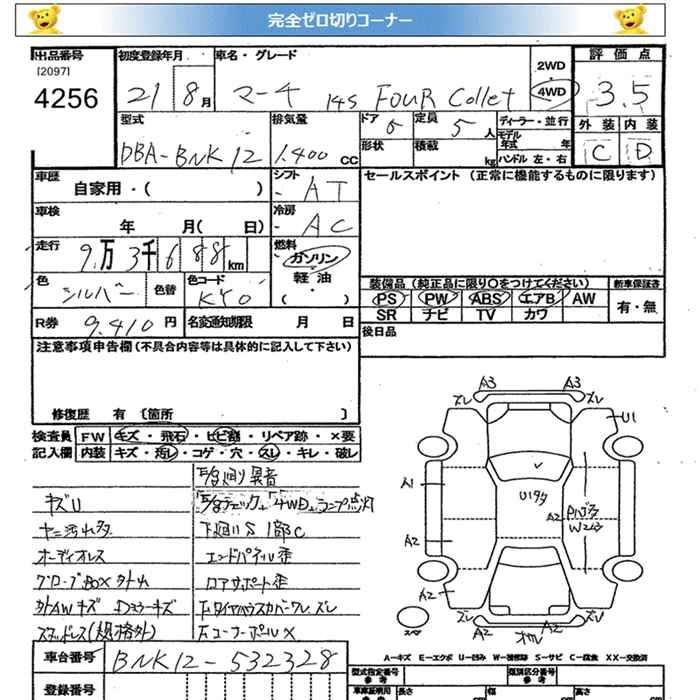 完全ゼロ切りコーナー
出品番号 初度登録年月 車名・グレード 2WD 評価点
[2097]
4256 21 8月 マーチ 14S FOUR Collet 4WD 3.5
型式 排気量 ドア 6 定員 5人 ディーラー・並行 外装 内装
DBA-BNK12 1.400cc 形状 積載 kg モデル年式 年 ハンドル 左・右 C D
車歴 自家用・( ) シフト - AT セールスポイント (正常に機能するものに限ります)
車検 年 月( 日) 冷房 - AC
走行 9万3千688km 燃料 ガソリン
軽油
・( )
色 シルバー 色替 色コード KY0 装備品(純正品に限り○をつけてください) 新車保証書
PS PW ABS エアB AW 有・無
SR ナビ TV カワ
R券 9.410円 名変通知期限 月 日 後日品
注意事項申告欄(不具合内容等は具体的に記入して下さい)
修復歴 有 [箇所 ]
検査員 FW キズ・飛石・ヒビ割・リペア跡・×要
記入欄 内装 キズ・汚れ・コゲ・穴・スレ・キレ・破レ
異音
キズU 4WDランプ点灯
ヤニ汚れ多 下廻りS 1部C
オーディオレス エンドパネル歪
グローブBOX外れ ロアサポート歪
外AWキズ タイヤハウスカバークレ ズレ
スタッドレス(規格外)
車台番号 BNK12-532328
登録番号
A3 A3
ズレ ズレ
U1
A1
U1多
A2
W2多
A2
A2
A2 A2
ズレ
スペア
A-キズ E-エクボ U-凹み W-補修跡 S-サビ C-腐食 XX-交換済
型式指定番号 類別区分番号
車庫証明用参考 長さ 幅 高さ